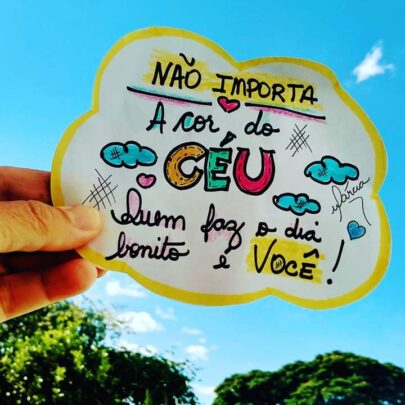 NÃO IMPORTA
A cor do
CÉU
Quem faz o dia
bonito é VOCÊ!
Márcia